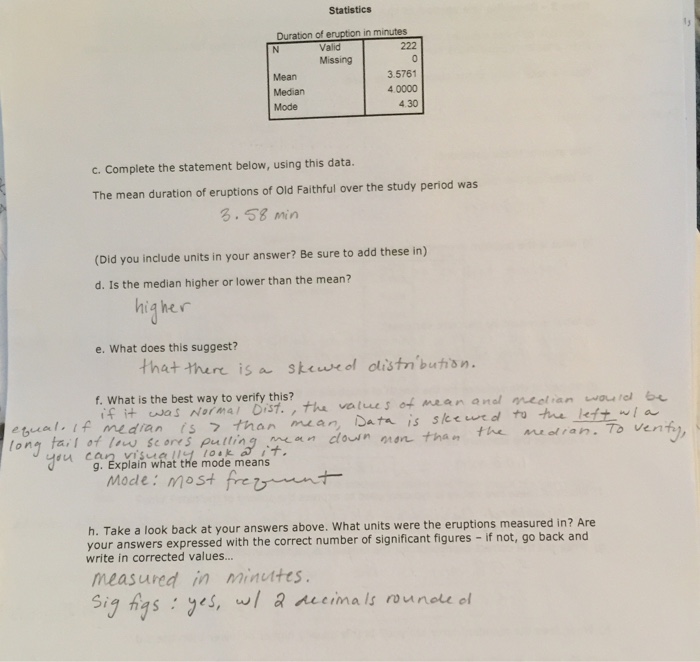 Statistics
Duration of eruption in minutes
N Valid 222
Missing 0
Mean 3.5761
Median 4.0000
Mode 4.30
c. Complete the statement below, using this data.
The mean duration of eruptions of Old Faithful over the study period was
3.58 min
(Did you include units in your answer? Be sure to add these in)
d. Is the median higher or lower than the mean?
higher
e. What does this suggest?
that there is a skewed distribution.
f. What is the best way to verify this?
if it was Normal Dist., the values of mean and median would be
equal. if median is > than mean, Data is skewed to the left w/ a
long tail of low scores pulling mean down more than the median. To verify,
you can visually look @ it.
g. Explain what the mode means
Mode: most frequent
h. Take a look back at your answers above. What units were the eruptions measured in? Are
your answers expressed with the correct number of significant figures – if not, go back and
write in corrected values...
measured in minutes.
Sig figs : yes, w/ 2 decimals rounded